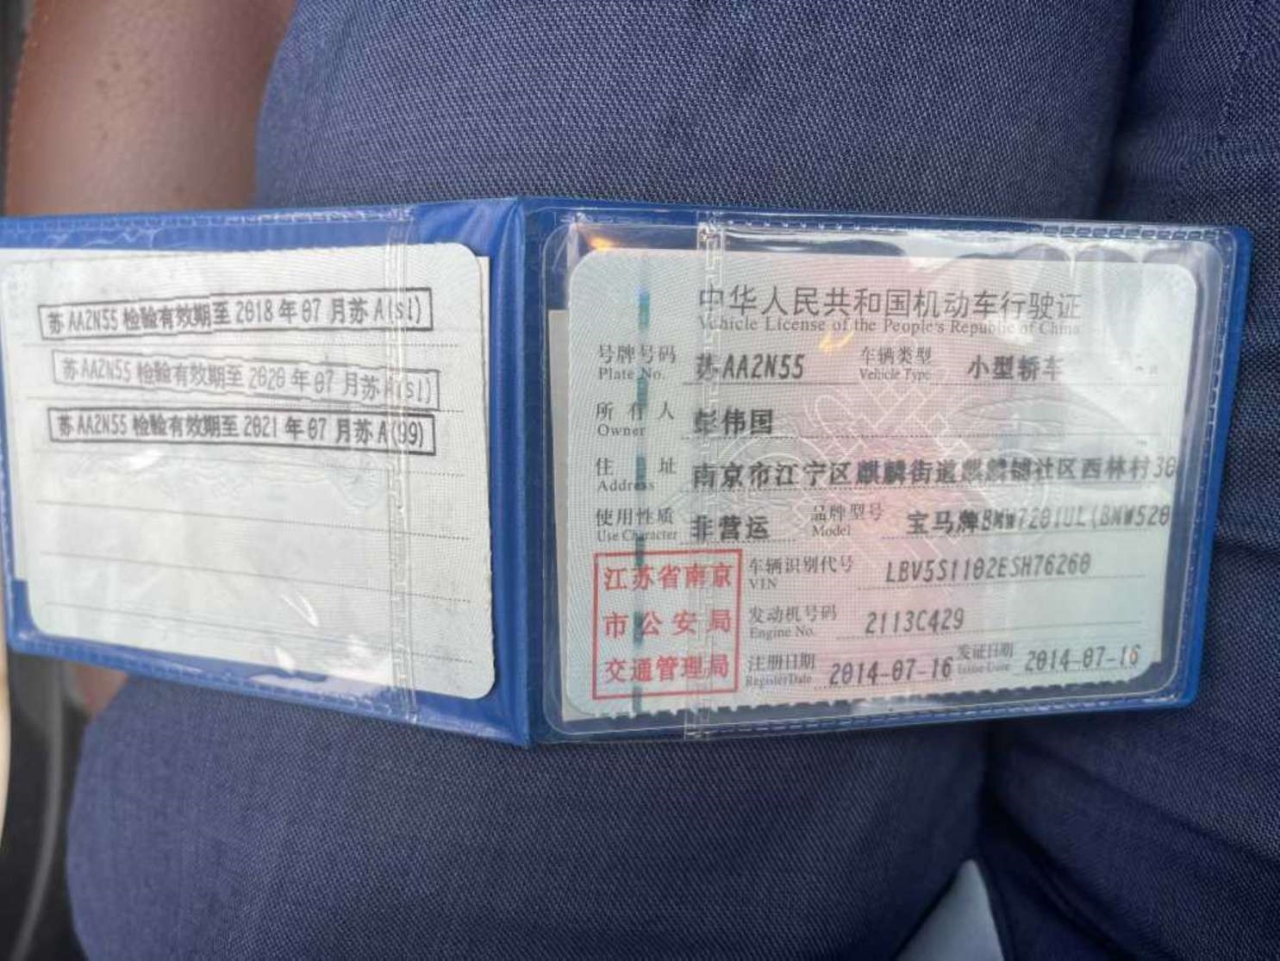 苏AA2N55检验有效期至2018年07月苏A(sl)
苏AA2N55检验有效期至2020年07月苏A(sl)
苏AA2N55检验有效期至2021年07月苏A(99)
中华人民共和国机动车行驶证
Vehicle License of the People's Republic of China
号牌号码 苏AA2N55 车辆类型 小型轿车
Plate No. Vehicle Type
所有人 彭伟国
Owner
住址 南京市江宁区麒麟街道麒麟铺社区西林村30
Address
使用性质 非营运 品牌型号 宝马牌BMW7201UL(BMW520
Use Character Model
江苏省南京
市公安局
交通管理局
车辆识别代号 LBV5S1102ESH76260
VIN
发动机号码 2113C429
Engine No.
注册日期 2014-07-16 发证日期 2014-07-16
Register Date Issue Date